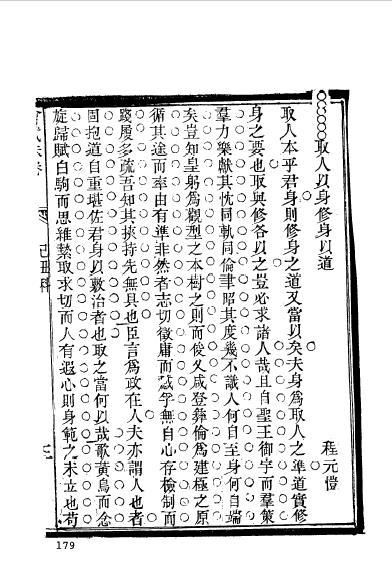 取人以身修身以道
程元愷
取人本乎君身則修身之道又當以矣夫身爲取人之準道實修
身之要也取與修各以之豈必求諸人哉且自聖王御宇而羣策
羣力樂獻其忱同軌同倫聿昭其度幾不識人何自至身何自端
矣豈知皇躬爲觀型之本樹之則而俊乂咸登彝倫爲建極之原
循其途而率由有準非然者志切徵庸而誠孚無自心存檢制而
踐履多疏吾知其挾持先無具也臣言爲政在人夫亦謂人也者
固抱道自重堪佐君身以敷治者也取之當何以哉歌黃鳥而念
旋歸賦白駒而思維縶取求切而人有遐心則身範之未立也苟
己丑科
179